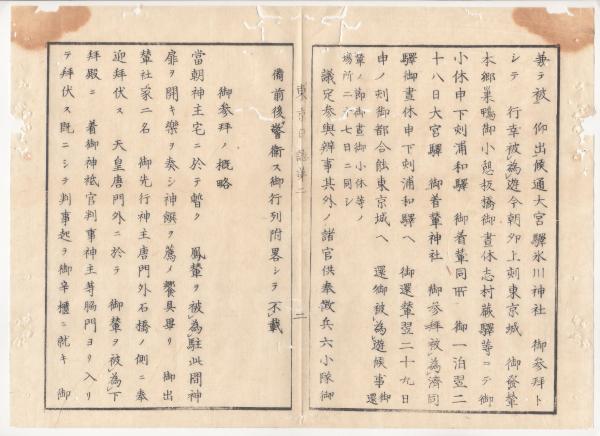 兼テ被　仰出候通大宮驛氷川神社　御參拜ト
シテ　行幸被為遊今朝卯上刻東京城　御發輦
本郷巣鴨御小憩板橋御晝休志村蕨驛等ニテ御
小休申下刻浦和驛　御着輦同所ニ御一泊翌二
十八日大宮驛　御着輦神社　御參拜被為濟同
驛御晝休申下刻浦和驛ヘ　御還輦翌二十九日
申ノ刻御都合能東京城ヘ　還御被為遊候事御還
輦ノ節御晝御小休等ノ
場所二十七日ニ同シ
議定參與辨事其外ノ諸官供奉徴兵六小隊御
東京日誌第二
二
備前後警衛ス御行列附畧シテ不載
御參拜ノ概略
當朝神主宅ニ於テ暫ク　鳳輦ヲ被為駐此間神
扉ヲ開キ樂ヲ奏シ神饌ヲ薦ノ饗具畢リ　御出
輦社家二名御先行神主唐門外石橋ノ側ニ奉
迎拜伏ス　天皇唐門外ニ於テ　御輦ヲ被為下
拜殿ニ　着御神祇官判事神主等脇門ヨリ入リ
テ拜伏ス既ニシテ判事起テ御辛櫃ニ就キ　御